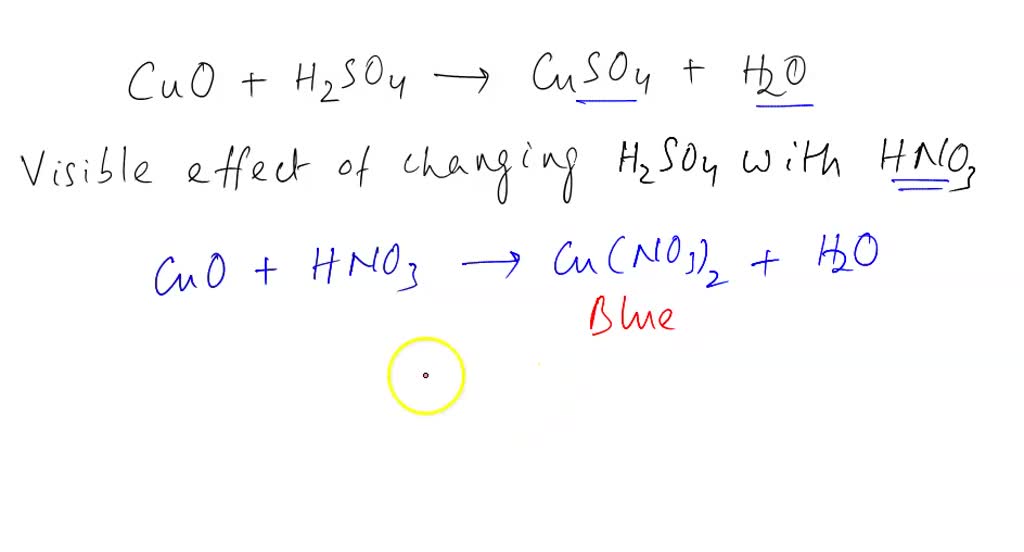 CuO + H₂SO₄ → CuSO₄ + H₂O
Visible effect of changing H₂SO₄ with HNO₃
CuO + HNO₃ → Cu(NO₃)₂ + H₂O
Blue